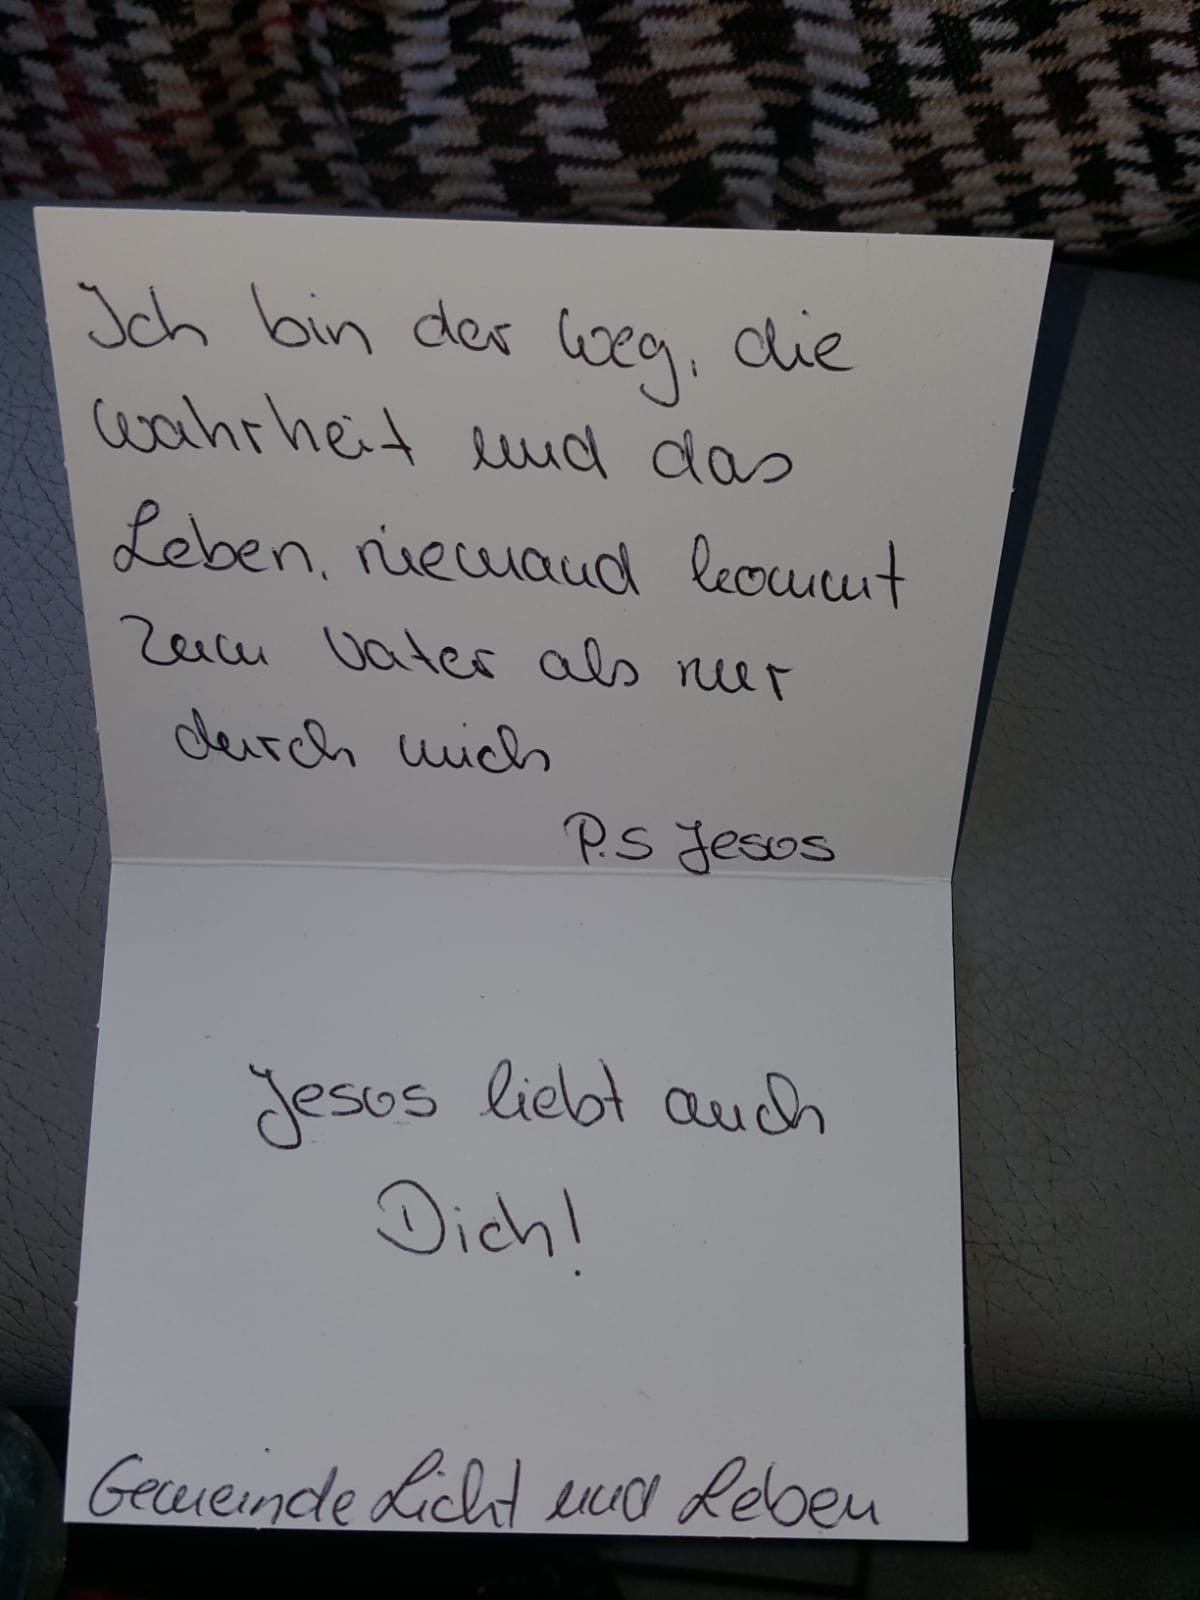 Ich bin der Weg, die
Wahrheit und das
Leben, niemand kommt
zum Vater als nur
durch mich
P.S Jesos
Jesos liebt auch
Dich!
Gemeinde Licht und Leben